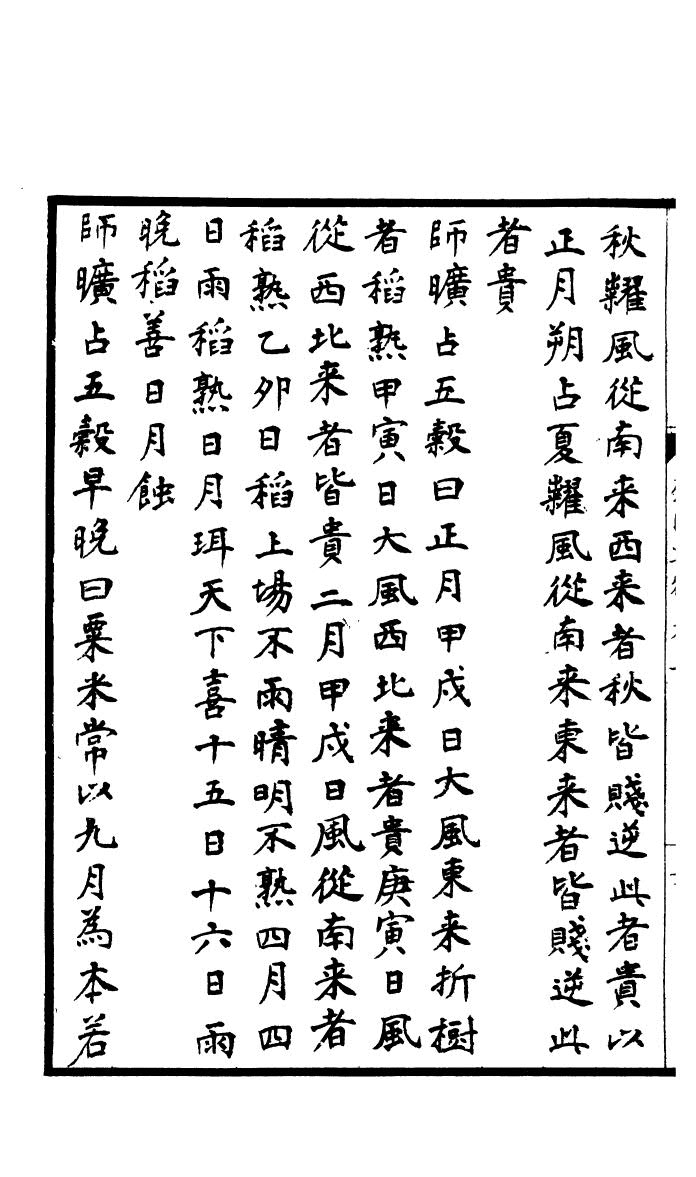 秋糶風從南来西来者秋皆賤逆此者貴以
正月朔占夏糶風從南来東来者皆賤逆此
者貴
師曠占五穀曰正月甲戌日大風東来折樹
者稻熟甲寅日大風西北来者貴庚寅日風
從西北来者皆貴二月甲戌日風從南来者
稻熟乙夘日稻上塲不雨晴明不熟四月四
日雨稻熟日月珥天下喜十五日十六日雨
晚稻善日月蝕
師曠占五穀早晚曰粟米常以九月為本若